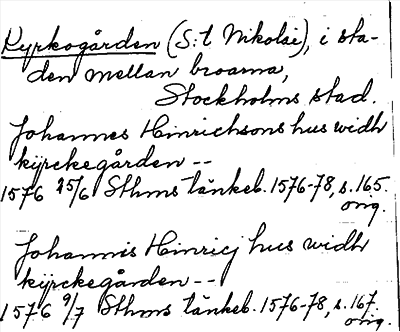 Kyrkogården (S:t Nikolai), i sta-
den mellan broarna,
Stockholms stad.
Johannes Hinrichsons hus widh
kyrckegården --
1576 25/6 Sthms tänkeb. 1576-78, s. 165.
orig.
Johannis Hinricj hus widh
kyrckegården --
1576 9/7 Sthms tänkeb. 1576-78, s. 167.
orig.